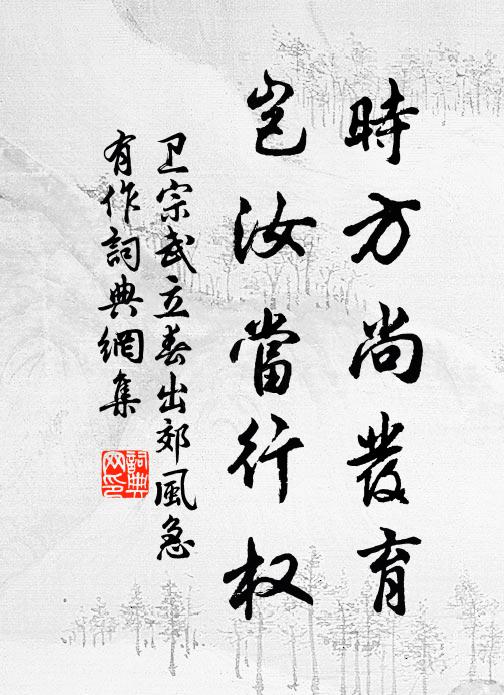 時方尚發育
岂汝當行权
卫宗武立春出郊風急
有作詞典網集
詞典
网印